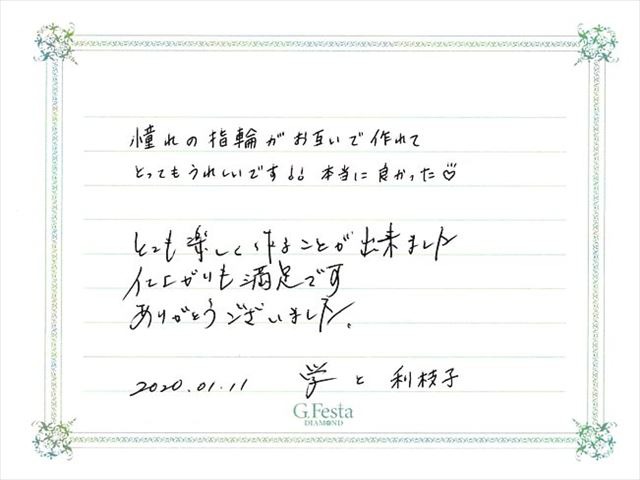 憧れの指輪がお互いで作れて
とってもうれしいです!! 本当に良かった♡
とても楽しく作ることが出来ました
仕上がりも満足です
ありがとうございました。
2020.01.11 学と利枝子
G.Festa
DIAMOND